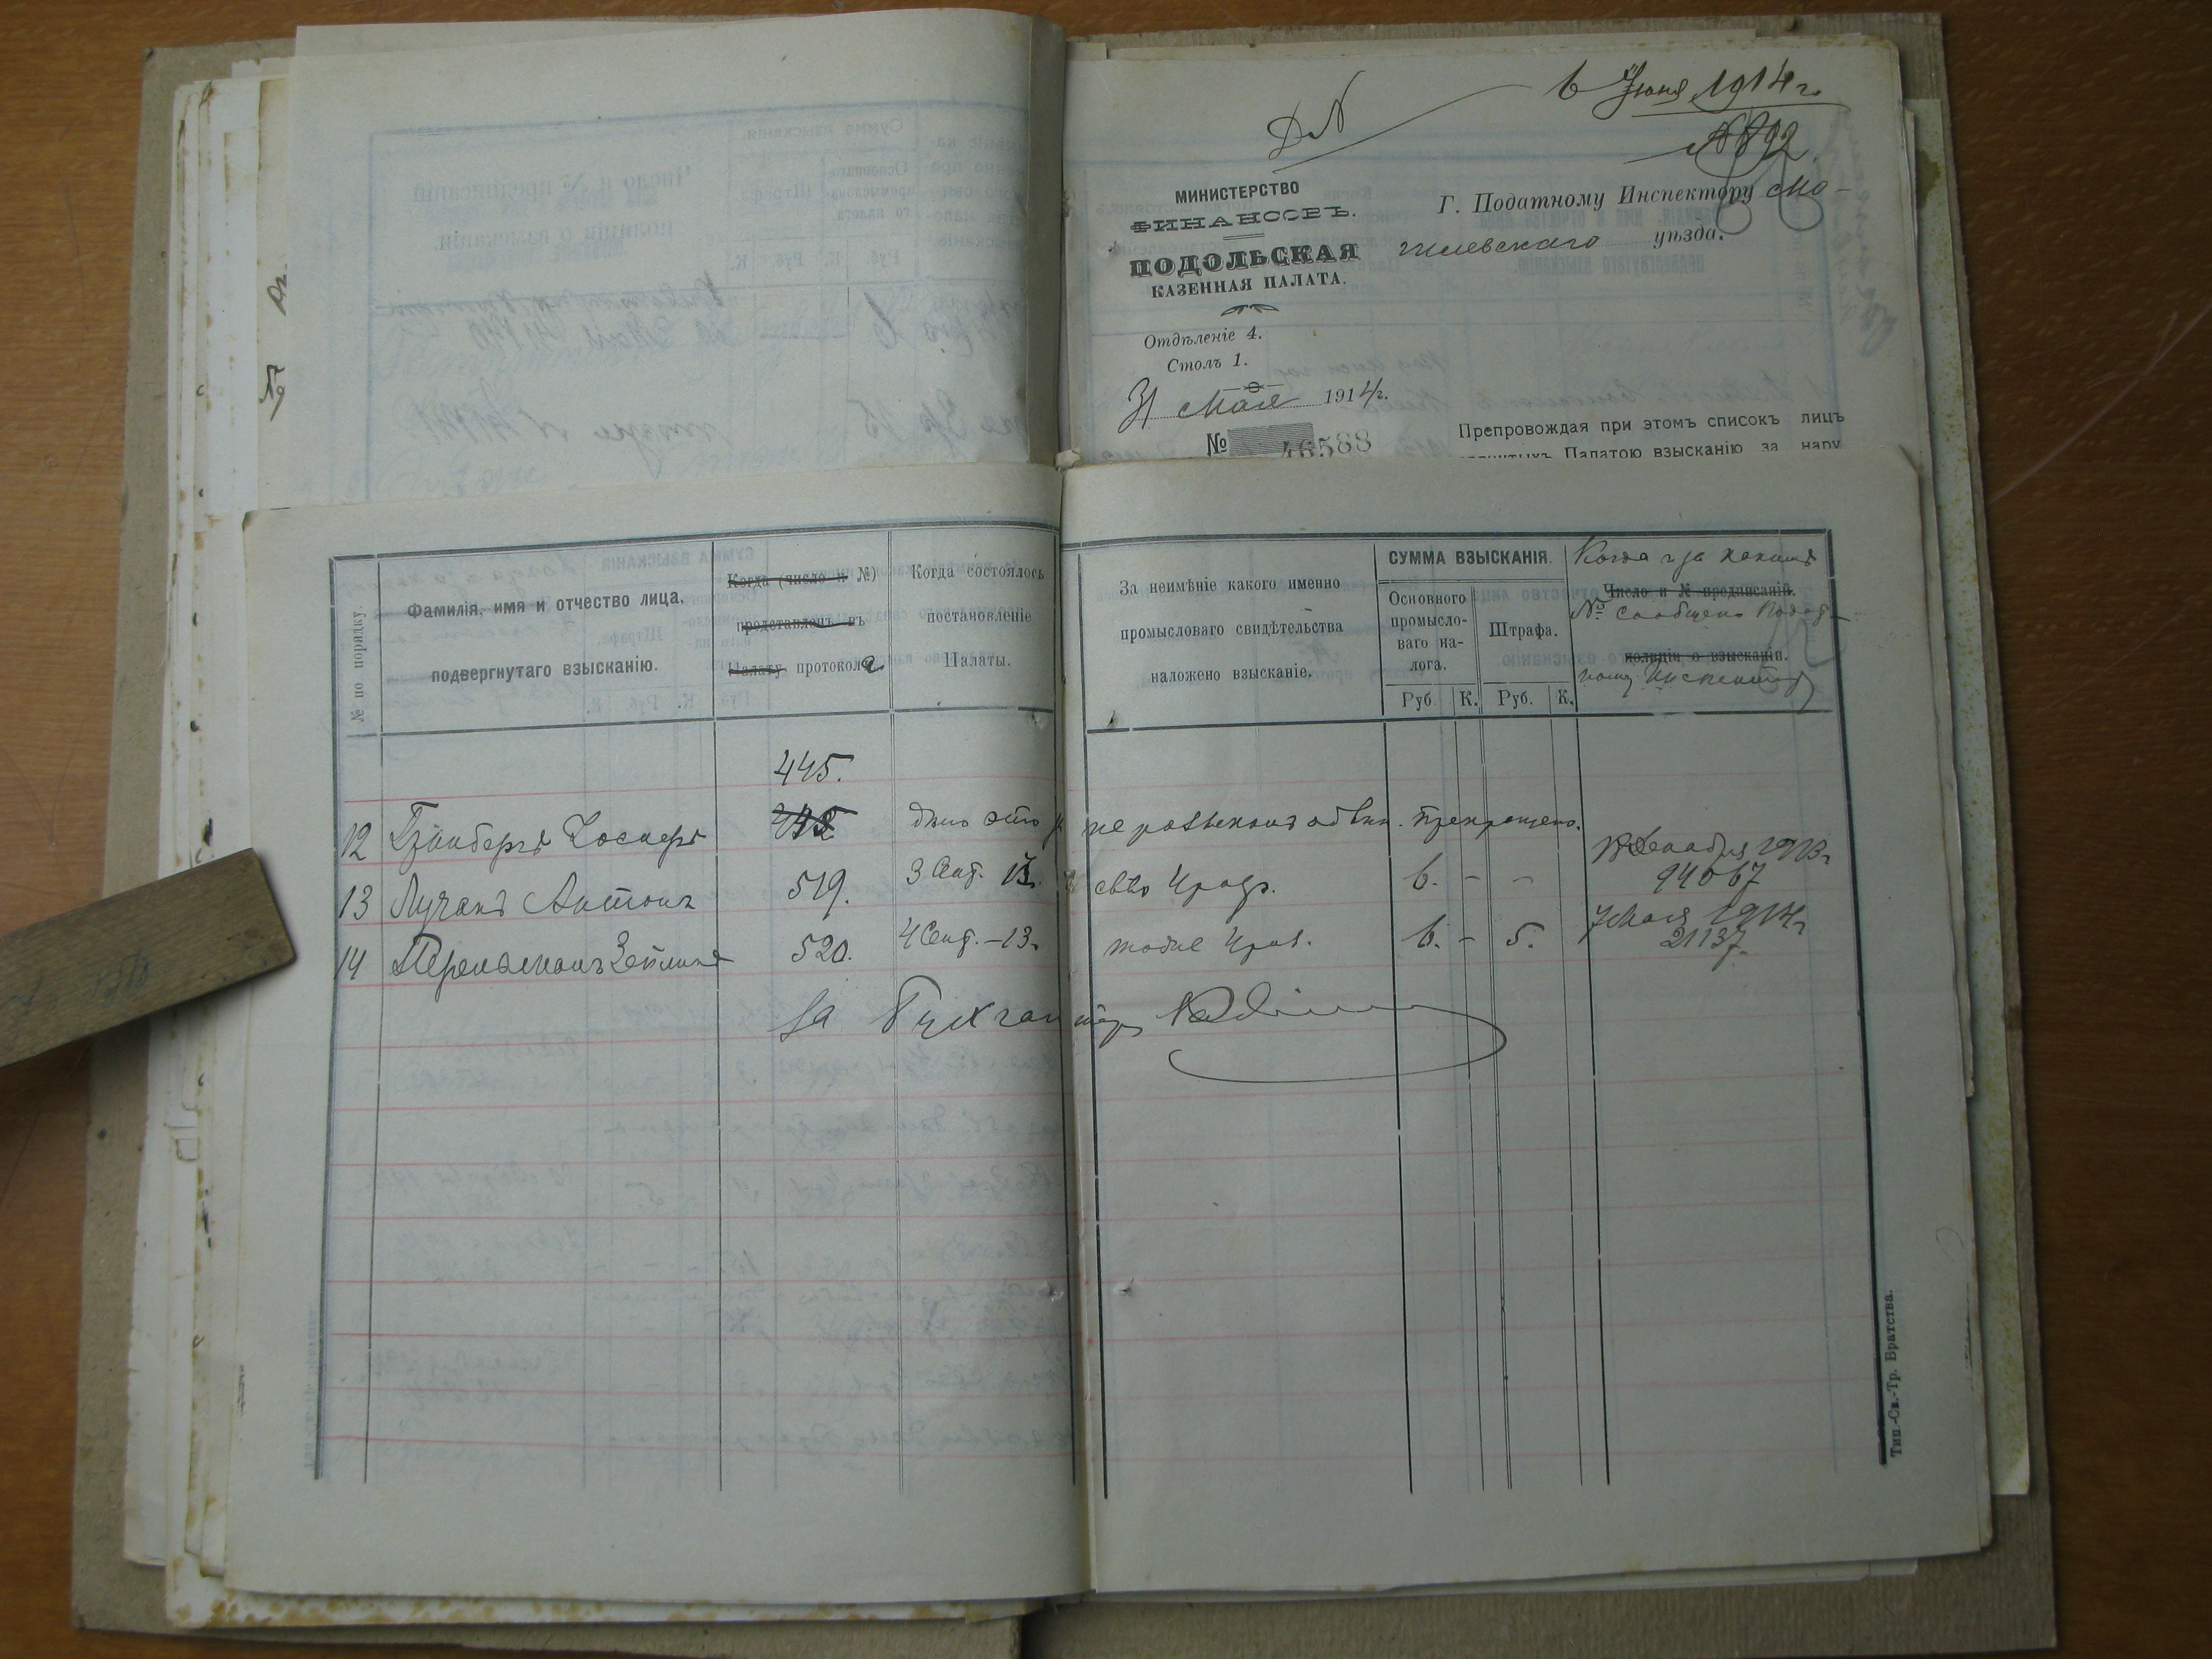 6 Июня 1914 г.
№ 892
МИНИСТЕРСТВО
ФИНАНСОВЪ.
ПОДОЛЬСКАЯ
КАЗЕННАЯ ПАЛАТА.
Отдѣленіе 4.
Столъ 1.
31 Мая 1914 г.
№ 46588
Г. Податному Инспектору Мо-
гилевскаго уѣзда.
Препровождая при этомъ списокъ лицъ
Палатою взысканію за нару
№ по порядку
Фамилія, имя и отчество лица,
подвергнутаго взысканію.
Когда (число и №)
представленъ въ
Палату протоколъ
Когда состоялось
постановленіе
Палаты.
За неимѣніе какого именно
промысловаго свидѣтельства
наложено взысканіе.
СУММА ВЗЫСКАНІЯ.
Основного
промысло-
ваго на-
лога.
Штрафа.
Руб К. Руб. К.
Когда и за какимъ
Число и № предписаній
№ сообщено Подат-
полиціи о взысканіи.
ному Инспектору
445.
12 Гринбергъ Іосифъ дѣло это прекращено.
13 Лучакъ Антонъ 519. 3 Сент. 13. св-во 4 разр. 6. - -
Декабря 1913 г.
94067
14 520. 4 Сент. - 13. тоже 4 раз. 6. - 5.
7 Мая 1914 г.
21137
За Бухгалтера
Тип.-Св.-Тр. Братства.